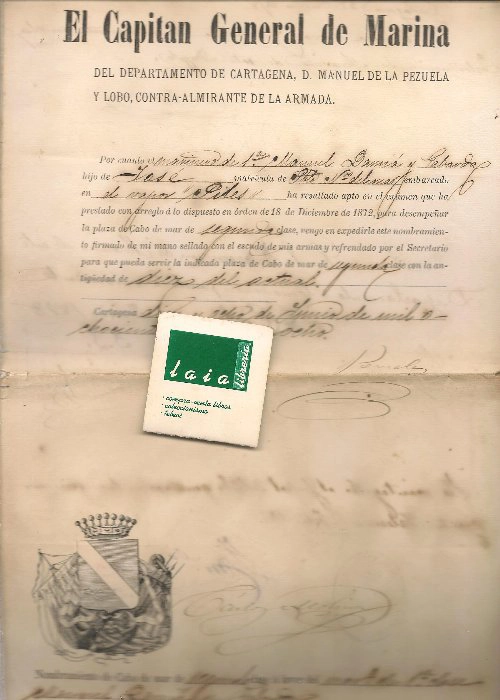 El Capitan General de Marina
DEL DEPARTAMENTO DE CARTAGENA, D. MANUEL DE LA PEZUELA
Y LOBO, CONTRA-ALMIRANTE DE LA ARMADA.
Por cuanto marinero de 1ª Manuel Damiá y
hijo de José matrícula de embarcado
en el vapor "Piles" ha resultado apto en el exámen que ha
prestado con arreglo á lo dispuesto en órden de 18 de Diciembre de 1872, para desempeñar
la plaza de Cabo de mar de segunda clase, vengo en expedirle este nombramien-
to firmado de mi mano sellado con el escudo de mis armas y refrendado por el Secretario
para que pueda servir la indicada plaza de Cabo de mar de segunda clase con la an-
tigüedad de diez del actual.
Cartagena de Junio de mil o-
chocientos ocho
laia
llibreria
· compra-venta libros
· coleccionismo
Nombramiento de Cabo de mar de segunda clase á favor del mar.º de 1ª clase
Manuel